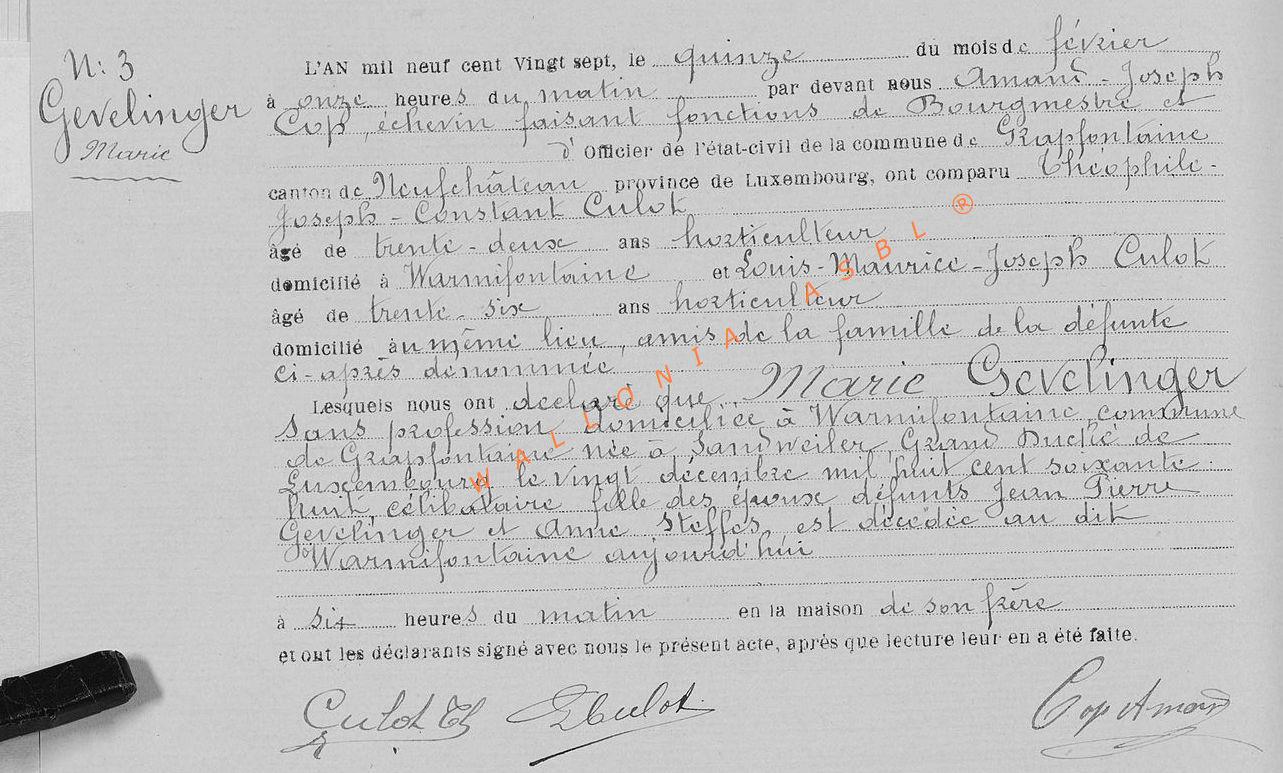 N: 3
Gevelinger
Marie
L'AN mil neuf cent Vingt sept, le quinze du mois de février
à onze heures du matin par devant nous Amand-Joseph
Cop, échevin faisant fonctions de Bourgmestre et
d'Officier de l'état-civil de la commune de Grapfontaine
canton de Neufchâteau province de Luxembourg, ont comparu Théophile-
Joseph-Constant Culot
âgé de trente-deux ans horticulteur
domicilié à Warmifontaine et Louis-Maurice-Joseph Culot
âgé de trente-six ans horticulteur
domicilié au même lieu, amis de la famille de la défunte
ci-après dénommée
Lesquels nous ont declaré que Marie Gevelinger
sans profession, domiciliée à Warmifontaine, commune
de Grapfontaine née à Sandweiler, Grand Duché de
Luxembourg le vingt décembre mil huit cent soixante
huit, célibataire fille des époux défunts Jean Pierre
Gevelinger et Anne Steffes, est décédée au dit
Warmifontaine aujourd'hui
à six heures du matin en la maison de son frère
et ont les déclarants signé avec nous le présent acte, après que lecture leur en a été faite.
Culot Th LCulot Cop Amand
WALLONIA ASBL ®